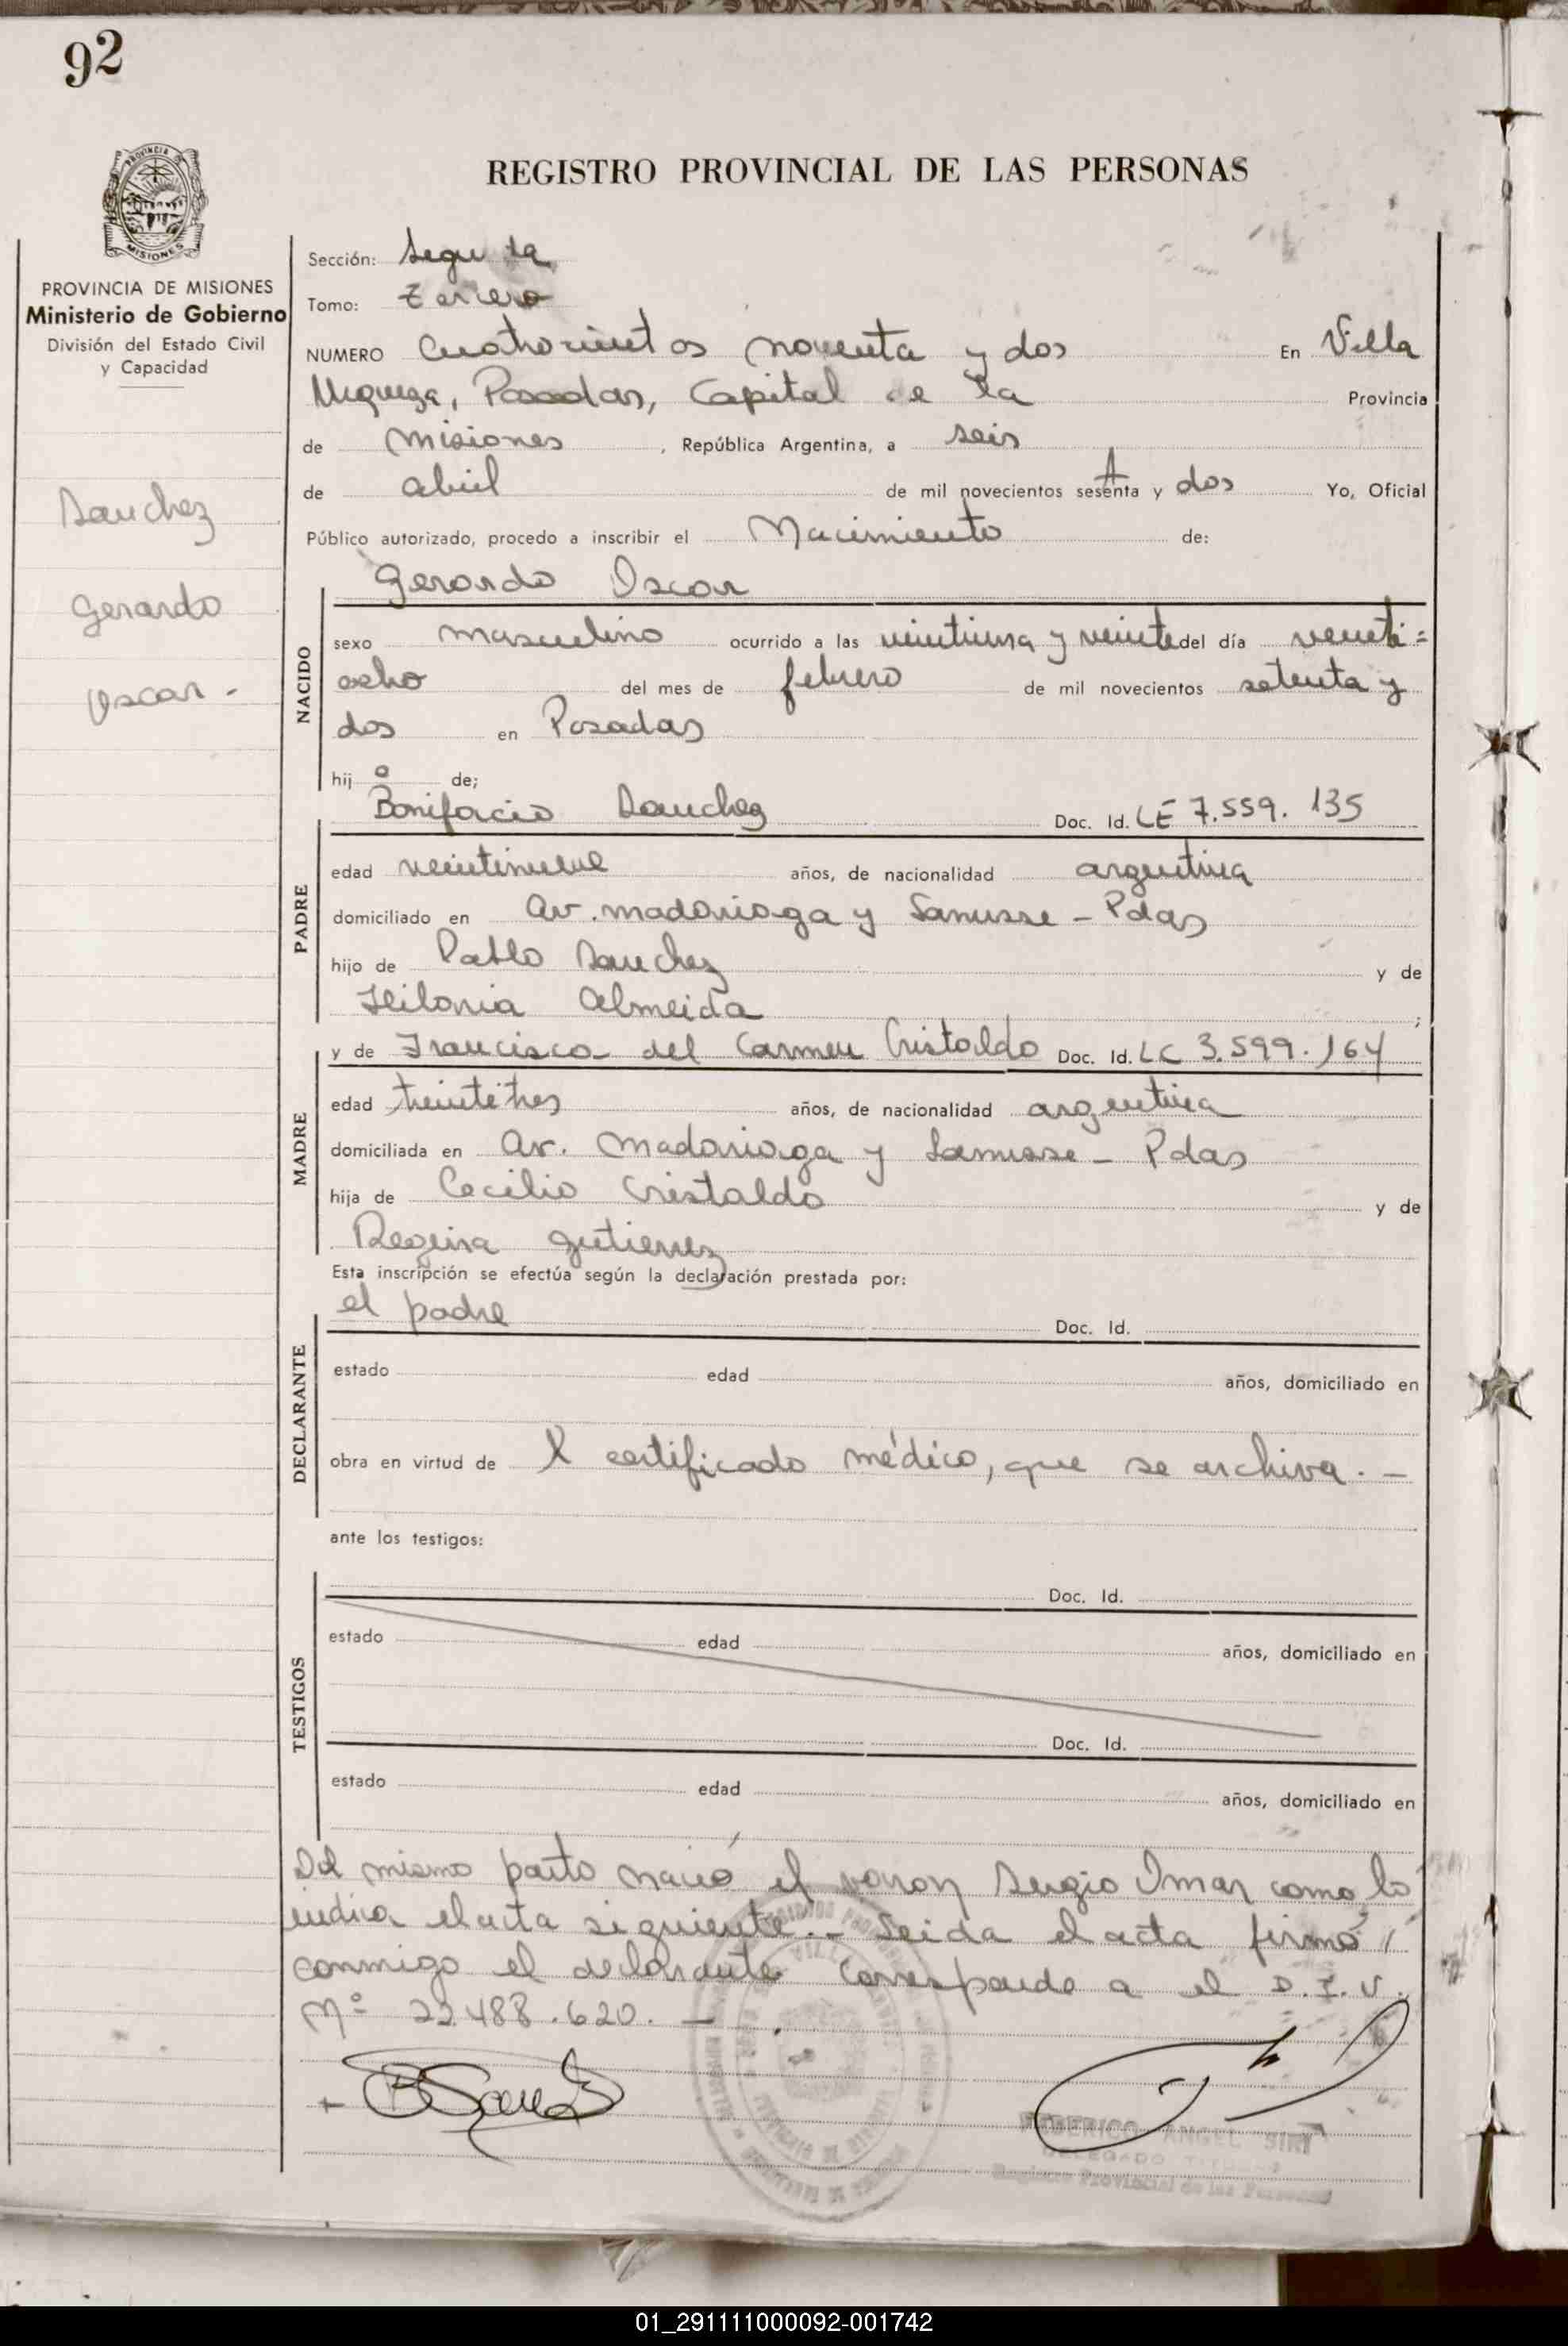 92
REGISTRO PROVINCIAL DE LAS PERSONAS
PROVINCIA DE MISIONES
Ministerio de Gobierno
División del Estado Civil
y Capacidad
Sanchez
Gerardo
Oscar -
Sección: Segunda
Tomo: Tercero
NUMERO Cuatrocientos noventa y dos En Villa
Urquiza, Posadas, Capital de la Provincia
de Misiones, República Argentina, a seis
de abril de mil novecientos sesenta y dos Yo, Oficial
Público autorizado, procedo a inscribir el Nacimiento de:
Gerardo Oscar
NACIDO
sexo masculino ocurrido a las veintiuna y veinte del día veinti=
ocho del mes de febrero de mil novecientos setenta y
dos en Posadas
hij o de;
PADRE
Bonifacio Sanchez Doc. Id. LE 7.559.135
edad veintinueve años, de nacionalidad argentina
domiciliado en Av. Madariaga y Lanusse - Pdas
hijo de Pablo Sanchez y de
Almeida;
MADRE
y de Francisca del Carmen Cristaldo Doc. Id. LC 3.599.164
edad treinta tres años, de nacionalidad argentina
domiciliada en Av. Madariaga y Lanusse - Pdas
hija de Cecilio Cristaldo y de
Regina Gutierrez
Esta inscripción se efectúa según la declaración prestada por:
DECLARANTE
el padre Doc. Id.
estado edad años, domiciliado en
obra en virtud de X certificado médico, que se archiva. -
ante los testigos:
TESTIGOS
Doc. Id.
estado edad años, domiciliado en
Doc. Id.
estado edad años, domiciliado en
Del mismo parto nació el varon Sergio Omar como lo
indica el acta siguiente. - Leida el acta firmó
conmigo el declarante corresponde a el D.I.U.
Nº 22.488.620. -
FEDERICO ANGEL SIRI
DELEGADO TITULAR
Registro Provincial de las Personas
01_291111000092-001742